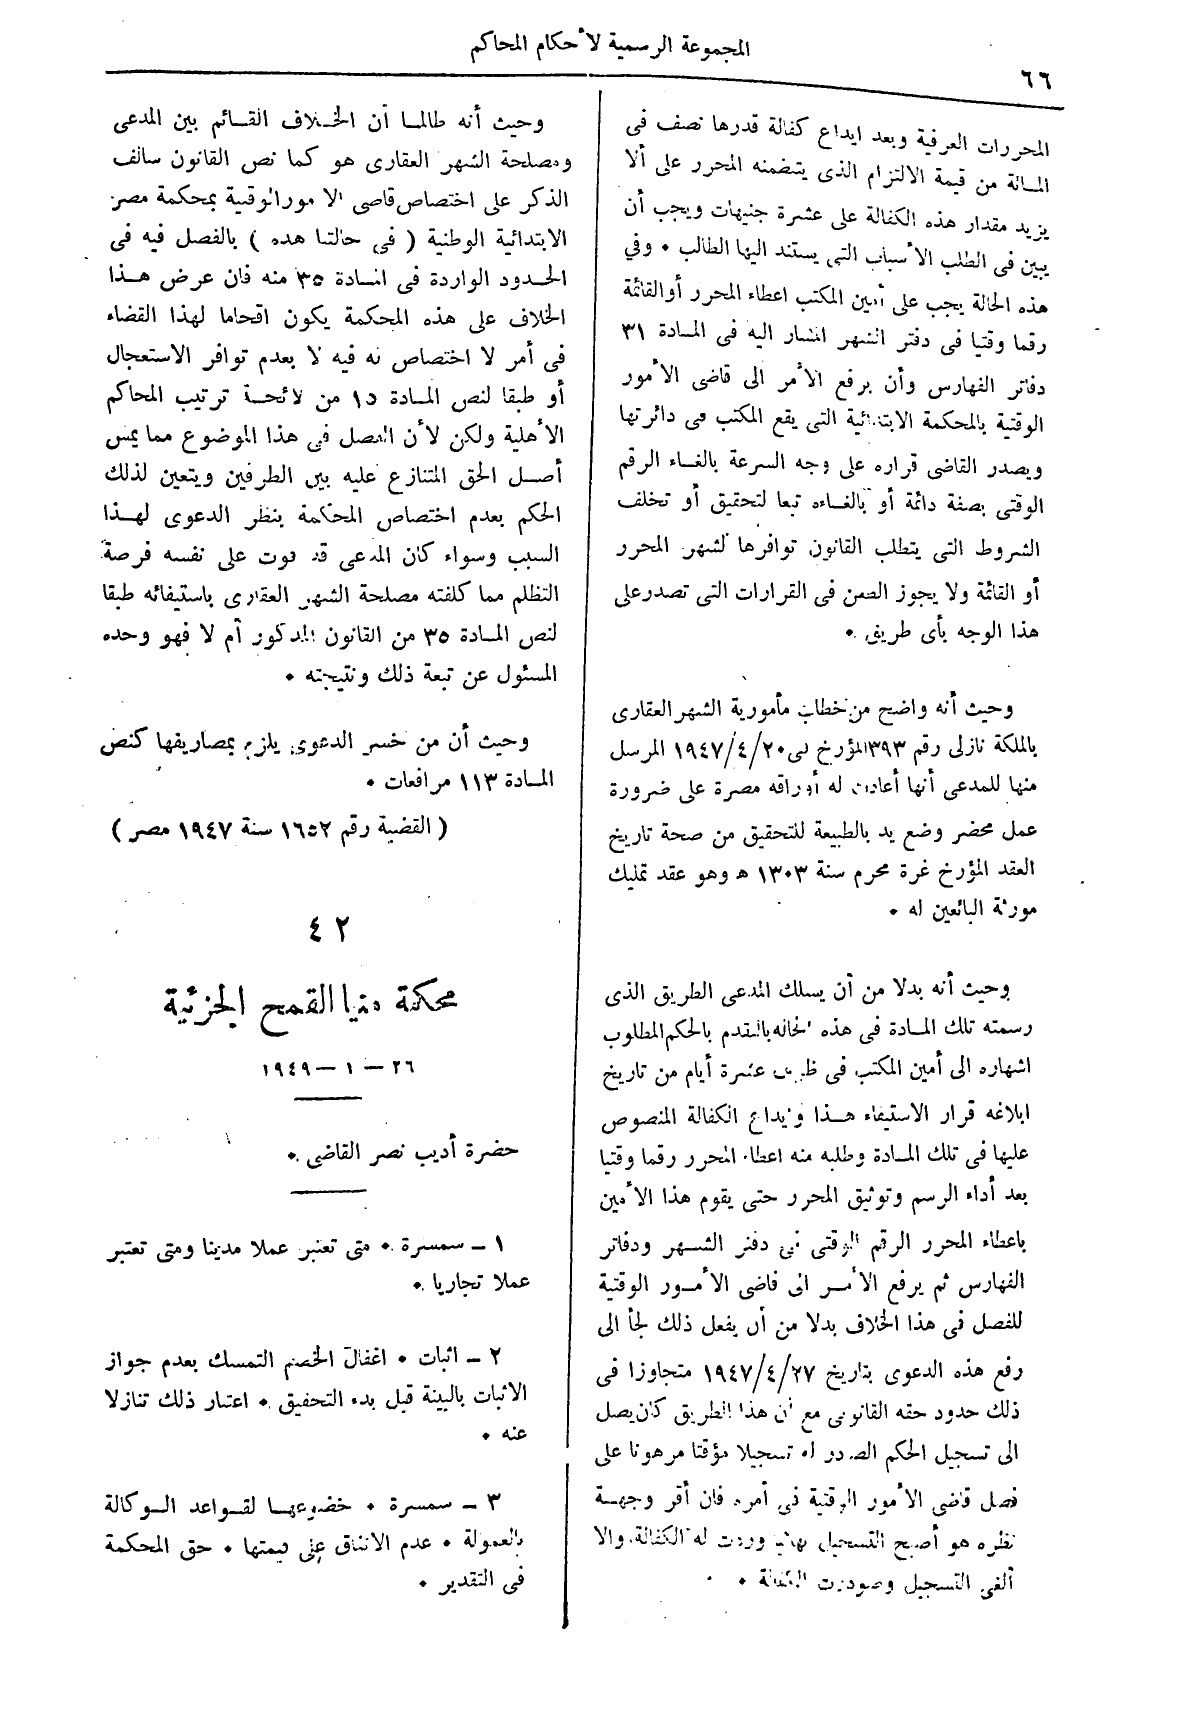 المجموعة الرسمية لأحكام المحاكم
٦٦
المحررات العرفية وبعد ايداع كفالة قدرها نصف فى
المائة من قيمة الالتزام الذى يتضمنه المحرر على ألا
يزيد مقدار هذه الكفالة على عشرة جنيهات ويجب أن
يبين فى الطلب الأسباب التى يستند اليها الطالب . وفي
هذه الحالة يجب على أمين المكتب اعطاء المحرر أو القائمة
رقما وقتيا فى دفتر الشهر المشار اليه فى المادة ٣١
دفاتر الفهارس وأن يرفع الأمر الى قاضى الأمور
الوقتية بالمحكمة الابتدائية التى يقع المكتب فى دائرتها
ويصدر القاضى قراره على وجه السرعة بالغاء الرقم
الوقتى بصفة دائمة أو بالغاءه تبعا لتحقيق أو تخلف
الشروط التى يتطلب القانون توافرها لشهر المحرر
أو القائمة ولا يجوز الطعن فى القرارات التى تصدر على
هذا الوجه بأى طريق .
وحيث أنه واضح من خطاب مأمورية الشهر العقارى
بالملكة نازلى رقم ٣٩٣ المؤرخ فى ١٩٤٧/٤/٢٠ المرسل
منها للمدعى أنها أعادت له أوراقه مصرة على ضرورة
عمل محضر وضع يد بالطبيعة للتحقيق من صحة تاريخ
العقد المؤرخ غرة محرم سنة ١٣٠٣ ه وهو عقد تمليك
مورثة البائعين له .
وحيث أنه بدلا من أن يسلك المدعى الطريق الذى
رسمته تلك المادة فى هذه الحاله بالتقدم بالحكم المطلوب
اشهاره الى أمين المكتب فى ظرف عشرة أيام من تاريخ
ابلاغه قرار الاستيفاء هذا وايداع الكفالة المنصوص
عليها فى تلك المادة وطلبه منه اعطاء المحرر رقما وقتيا
بعد أداء الرسم وتوثيق المحرر حتى يقوم هذا الأمين
باعطاء المحرر الرقم الوقتى فى دفتر الشهر ودفاتر
الفهارس ثم يرفع الأمر الى قاضى الأمور الوقتية
للفصل فى هذا الخلاف بدلا من أن يفعل ذلك لجأ الى
رفع هذه الدعوى بتاريخ ١٩٤٧/٤/٢٧ متجاوزا فى
ذلك حدود حقه القانونى مع أن هذا الطريق كان يصل
الى تسجيل الحكم الصادر له تسجيلا مؤقتا مرهونا على
فصل قاضى الأمور الوقتية فى أمره فان أقر وجهة
نظره هو أصبح التسجيل نهائيا وردت له الكفالة والا
ألغى التسجيل وصودرت الكفالة .
وحيث أنه طالما أن الخلاف القائم بين المدعى
ومصلحة الشهر العقارى هو كما نص القانون سالف
الذكر على اختصاص قاضى الامور الوقتية بمحكمة مصر
الابتدائية الوطنية ( فى حالتنا هذه ) بالفصل فيه فى
الحدود الواردة فى المادة ٣٥ منه فان عرض هذا
الخلاف على هذه المحكمة يكون اقحاما لهذا القضاء
فى أمر لا اختصاص له فيه لا بعدم توافر الاستعجال
أو طبقا لنص المادة ١٥ من لائحة ترتيب المحاكم
الأهلية ولكن لأن الفصل فى هذا الموضوع مما يمس
أصل الحق المتنازع عليه بين الطرفين ويتعين لذلك
الحكم بعدم اختصاص المحكمة بنظر الدعوى لهذا
السبب وسواء كان المدعى قد فوت على نفسه فرصة
التظلم مما كلفته مصلحة الشهر العقارى باستيفائه طبقا
لنص المادة ٣٥ من القانون المذكور أم لا فهو وحده
المسئول عن تبعة ذلك ونتيجته .
وحيث أن من خسر الدعوى يلزم بمصاريفها كنص
المادة ١١٣ مرافعات .
( القضية رقم ١٦٥٢ سنة ١٩٤٧ مصر )
٤٢
محكمة منيا القمح الجزئية
٢٦ – ١ – ١٩٤٩
حضرة أديب نصر القاضى .
١ – سمسرة . متى تعتبر عملا مدنيا ومتى تعتبر
عملا تجاريا .
٢ – اثبات . اغفال الخصم التمسك بعدم جواز
الاثبات بالبينة قبل بدء التحقيق . اعتبار ذلك تنازلا
عنه .
٣ – سمسرة . خضوعها لقواعد الوكالة
بالعمولة . عدم الاتفاق على قيمتها . حق المحكمة
فى التقدير .